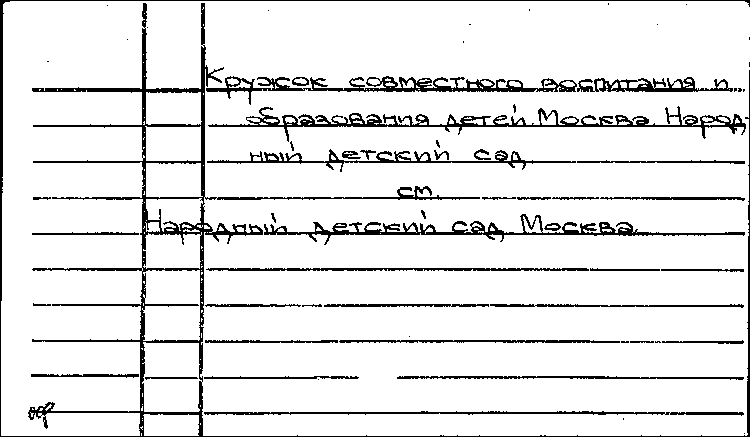 Кружок совместного воспитания и
образования детей. Москва. Народ-
ный детский сад
см.
Народный детский сад. Москва.